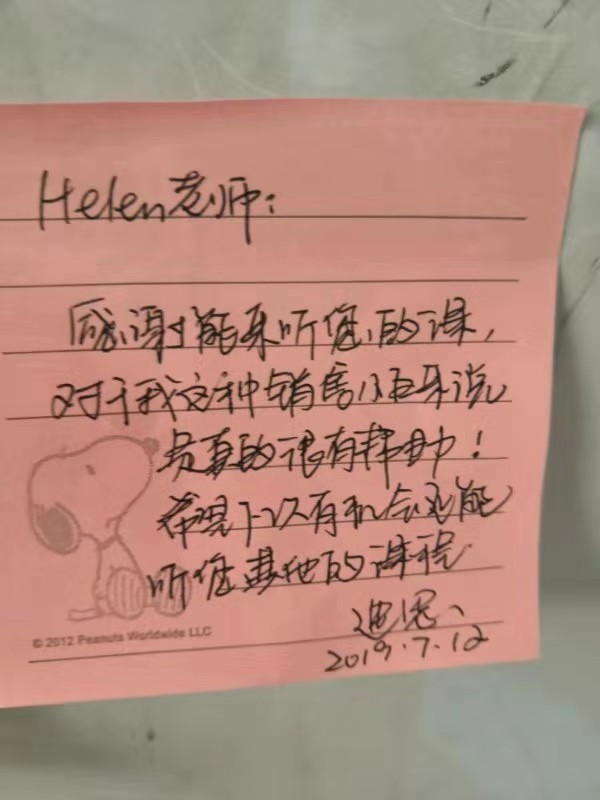 Helen老师：
感谢能来听您的课，
对于我这种销售小白来说
是真的很有帮助！
希望下次有机会还能
听您其他的课程
迪恩
2019.7.12
© 2012 Peanuts Worldwide LLC